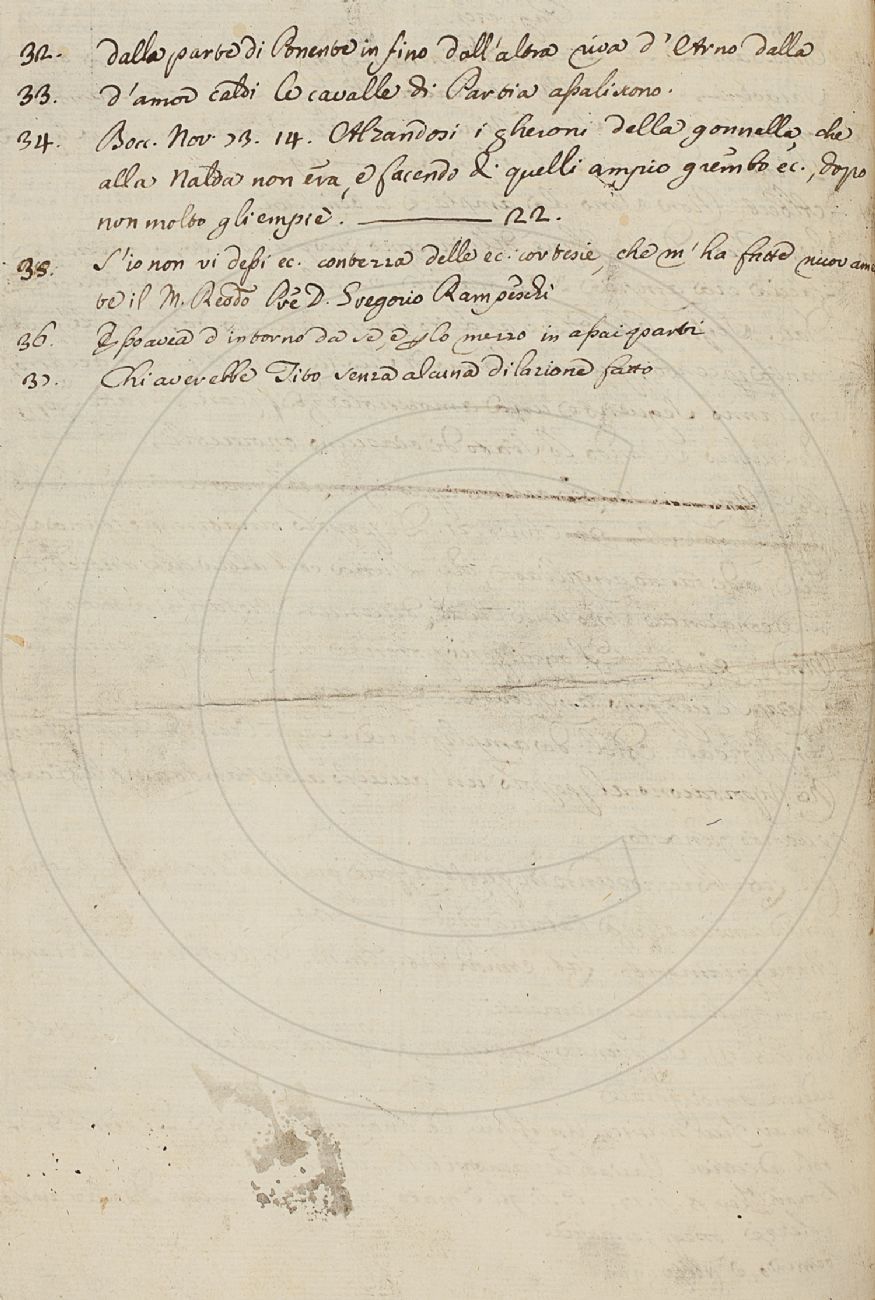 32. dalla parte di Ponente in fino dall'altra riva d'Arno dalla
33. d'amor caldi le cavalle di Partia assalirono.
34. Bocc. Nov. 73. 14. Alzandosi i gheroni della gonnella, che
alla Nalda non era, e facendo di quelli ampio grembo ec., dopo
non molto gli empiè. ——— 22.
35. S'io non vi dessi ec. contezza delle ec. cortesie, che m'ha fatte nuovame
te il M. Re͞do P͞re D. Gregorio Rampeschi
36. Esso avea d'intorno da se, e p lo mezzo in assai parti
37. Chi averebbe Tito senza alcuna dilazione fatto